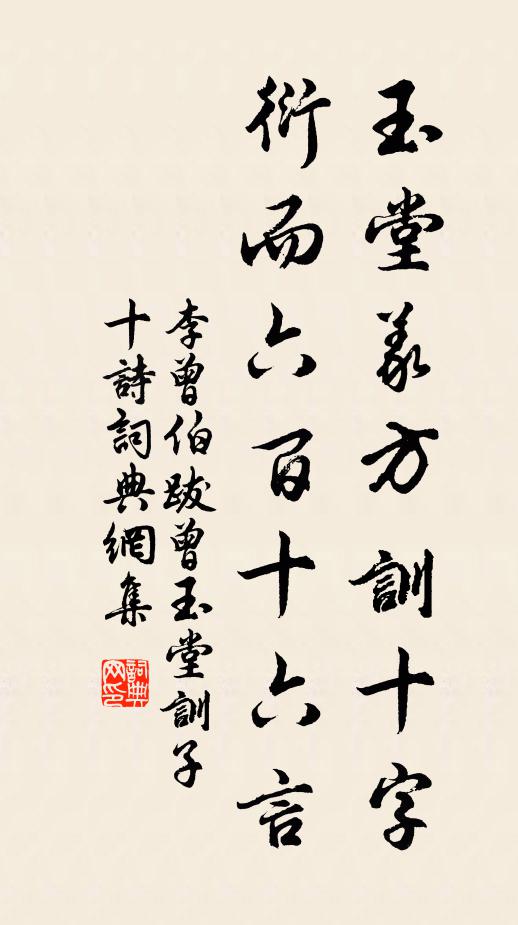 玉堂義方訓十字
衍而六百十六言
李曾伯跋曾玉堂訓子
十詩詞典網集
詞典网印